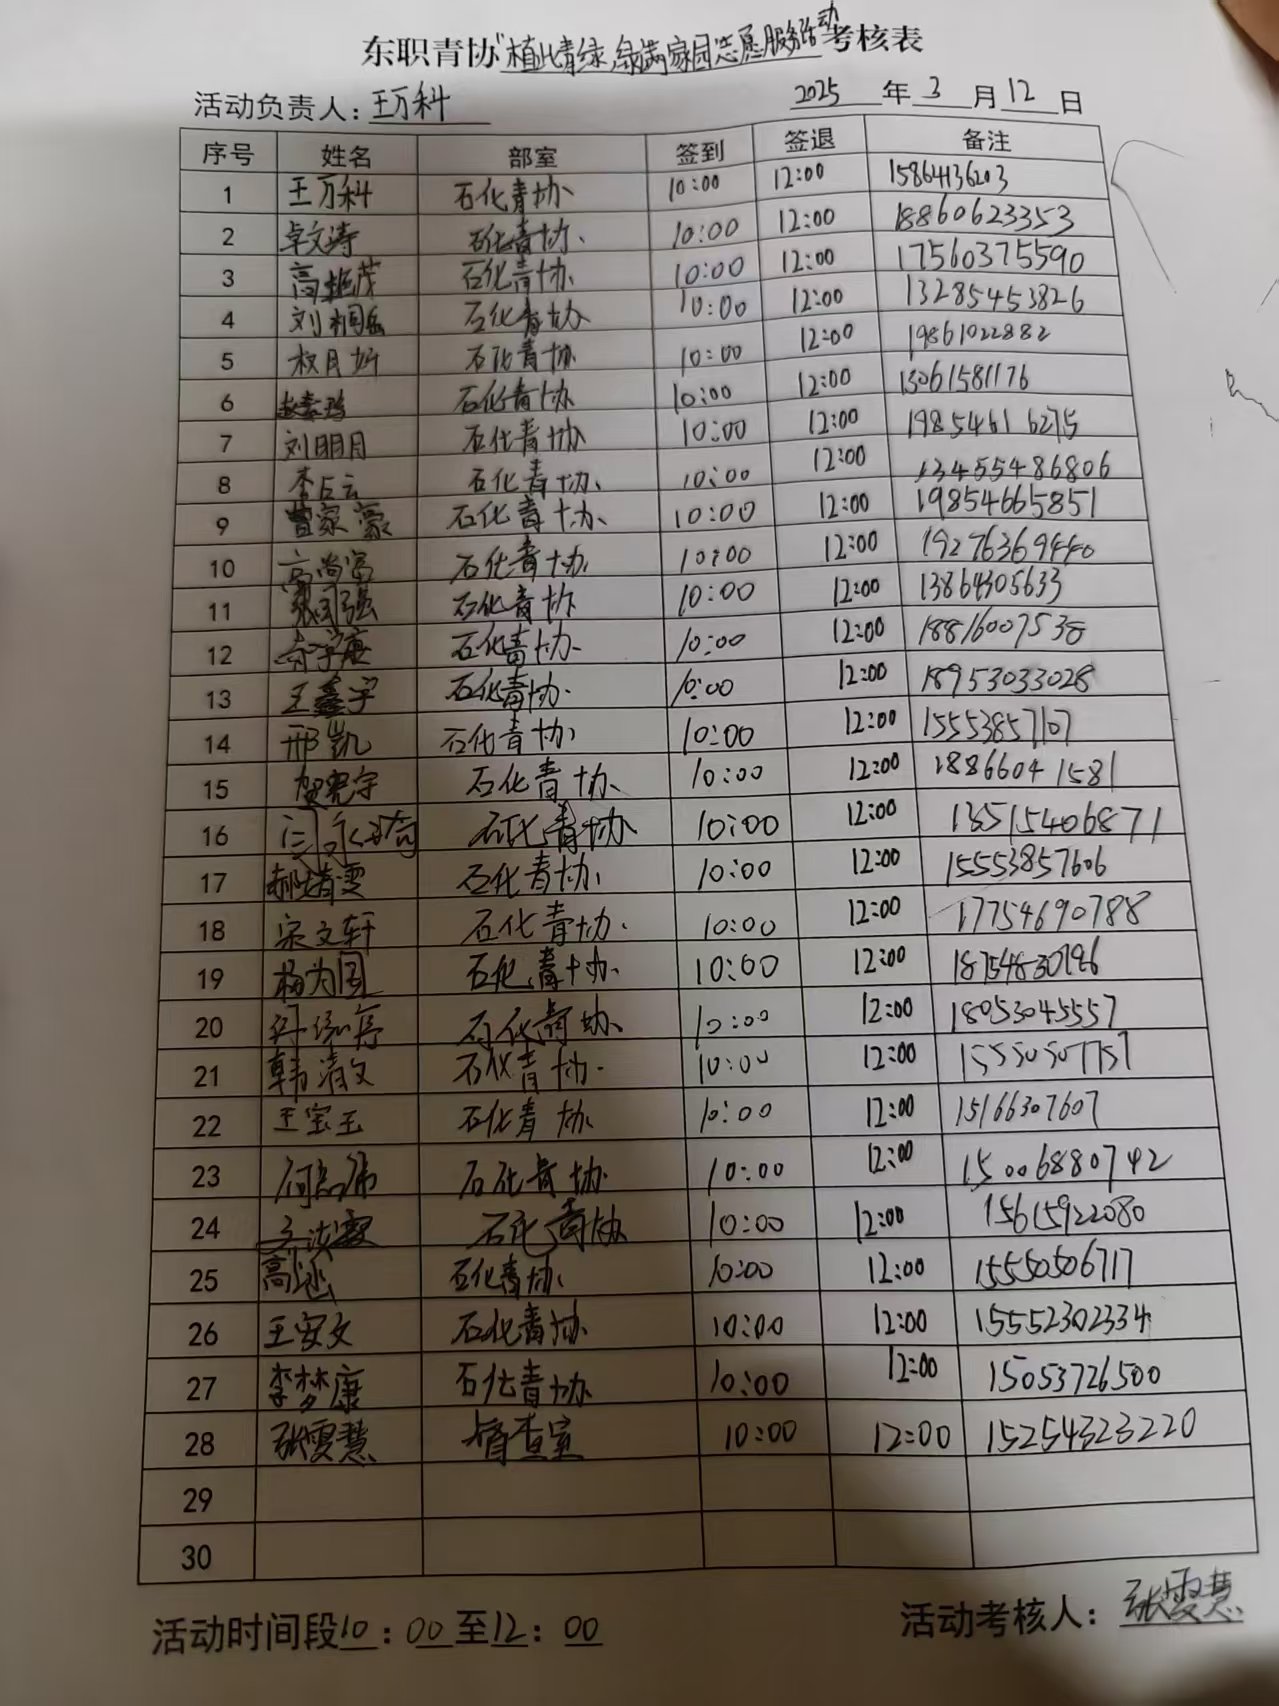 东职青协"植此青绿,绿满家园志愿服务活动考核表
活动负责人:王万科 2025年3月12日
序号 姓名 部室 签到 签退 备注
1 王万科 石化青协 10:00 12:00 15864136203
2 卓文涛 石化青协 10:00 12:00 18860623353
3 石化青协 10:00 12:00 17560375590
4 石化青协 10:00 12:00 13285453826
5 权月妍 石化青协 10:00 12:00 19861022882
6 石化青协 10:00 12:00 13061581176
7 刘明月 石化青协 10:00 12:00 19854616275
8 石化青协 10:00 12:00 134555486806
9 曹家豪 石化青协 10:00 12:00 19854665851
10 高尚富 石化青协 10:00 12:00 19276369440
11 石化青协 10:00 12:00 13864305633
12 石化青协 10:00 12:00 18816007538
13 王鑫宇 石化青协 10:00 12:00 18953033028
14 邢凯 石化青协 10:00 12:00 15553857107
15 贺亮宇 石化青协 10:00 12:00 18866041581
16 石化青协 10:00 12:00 13515406871
17 郝靖雯 石化青协 10:00 12:00 15553857606
18 宋文轩 石化青协 10:00 12:00 17754690788
19 杨为国 石化青协 10:00 12:00
20 石化青协 10:00 12:00 18053045557
21 韩清文 石化青协 10:00 12:00 15550507757
22 王宝玉 石化青协 10:00 12:00 15166307607
23 石化青协 10:00 12:00 15006880742
24 石化青协 10:00 12:00 15615922080
25 石化青协 10:00 12:00 15550506717
26 王安文 石化青协 10:00 12:00 15552302334
27 李梦康 石化青协 10:00 12:00 15053726500
28 张雯慧 督查室 10:00 12:00 15254323220
29
30
活动时间段10:00至12:00 活动考核人:张雯慧